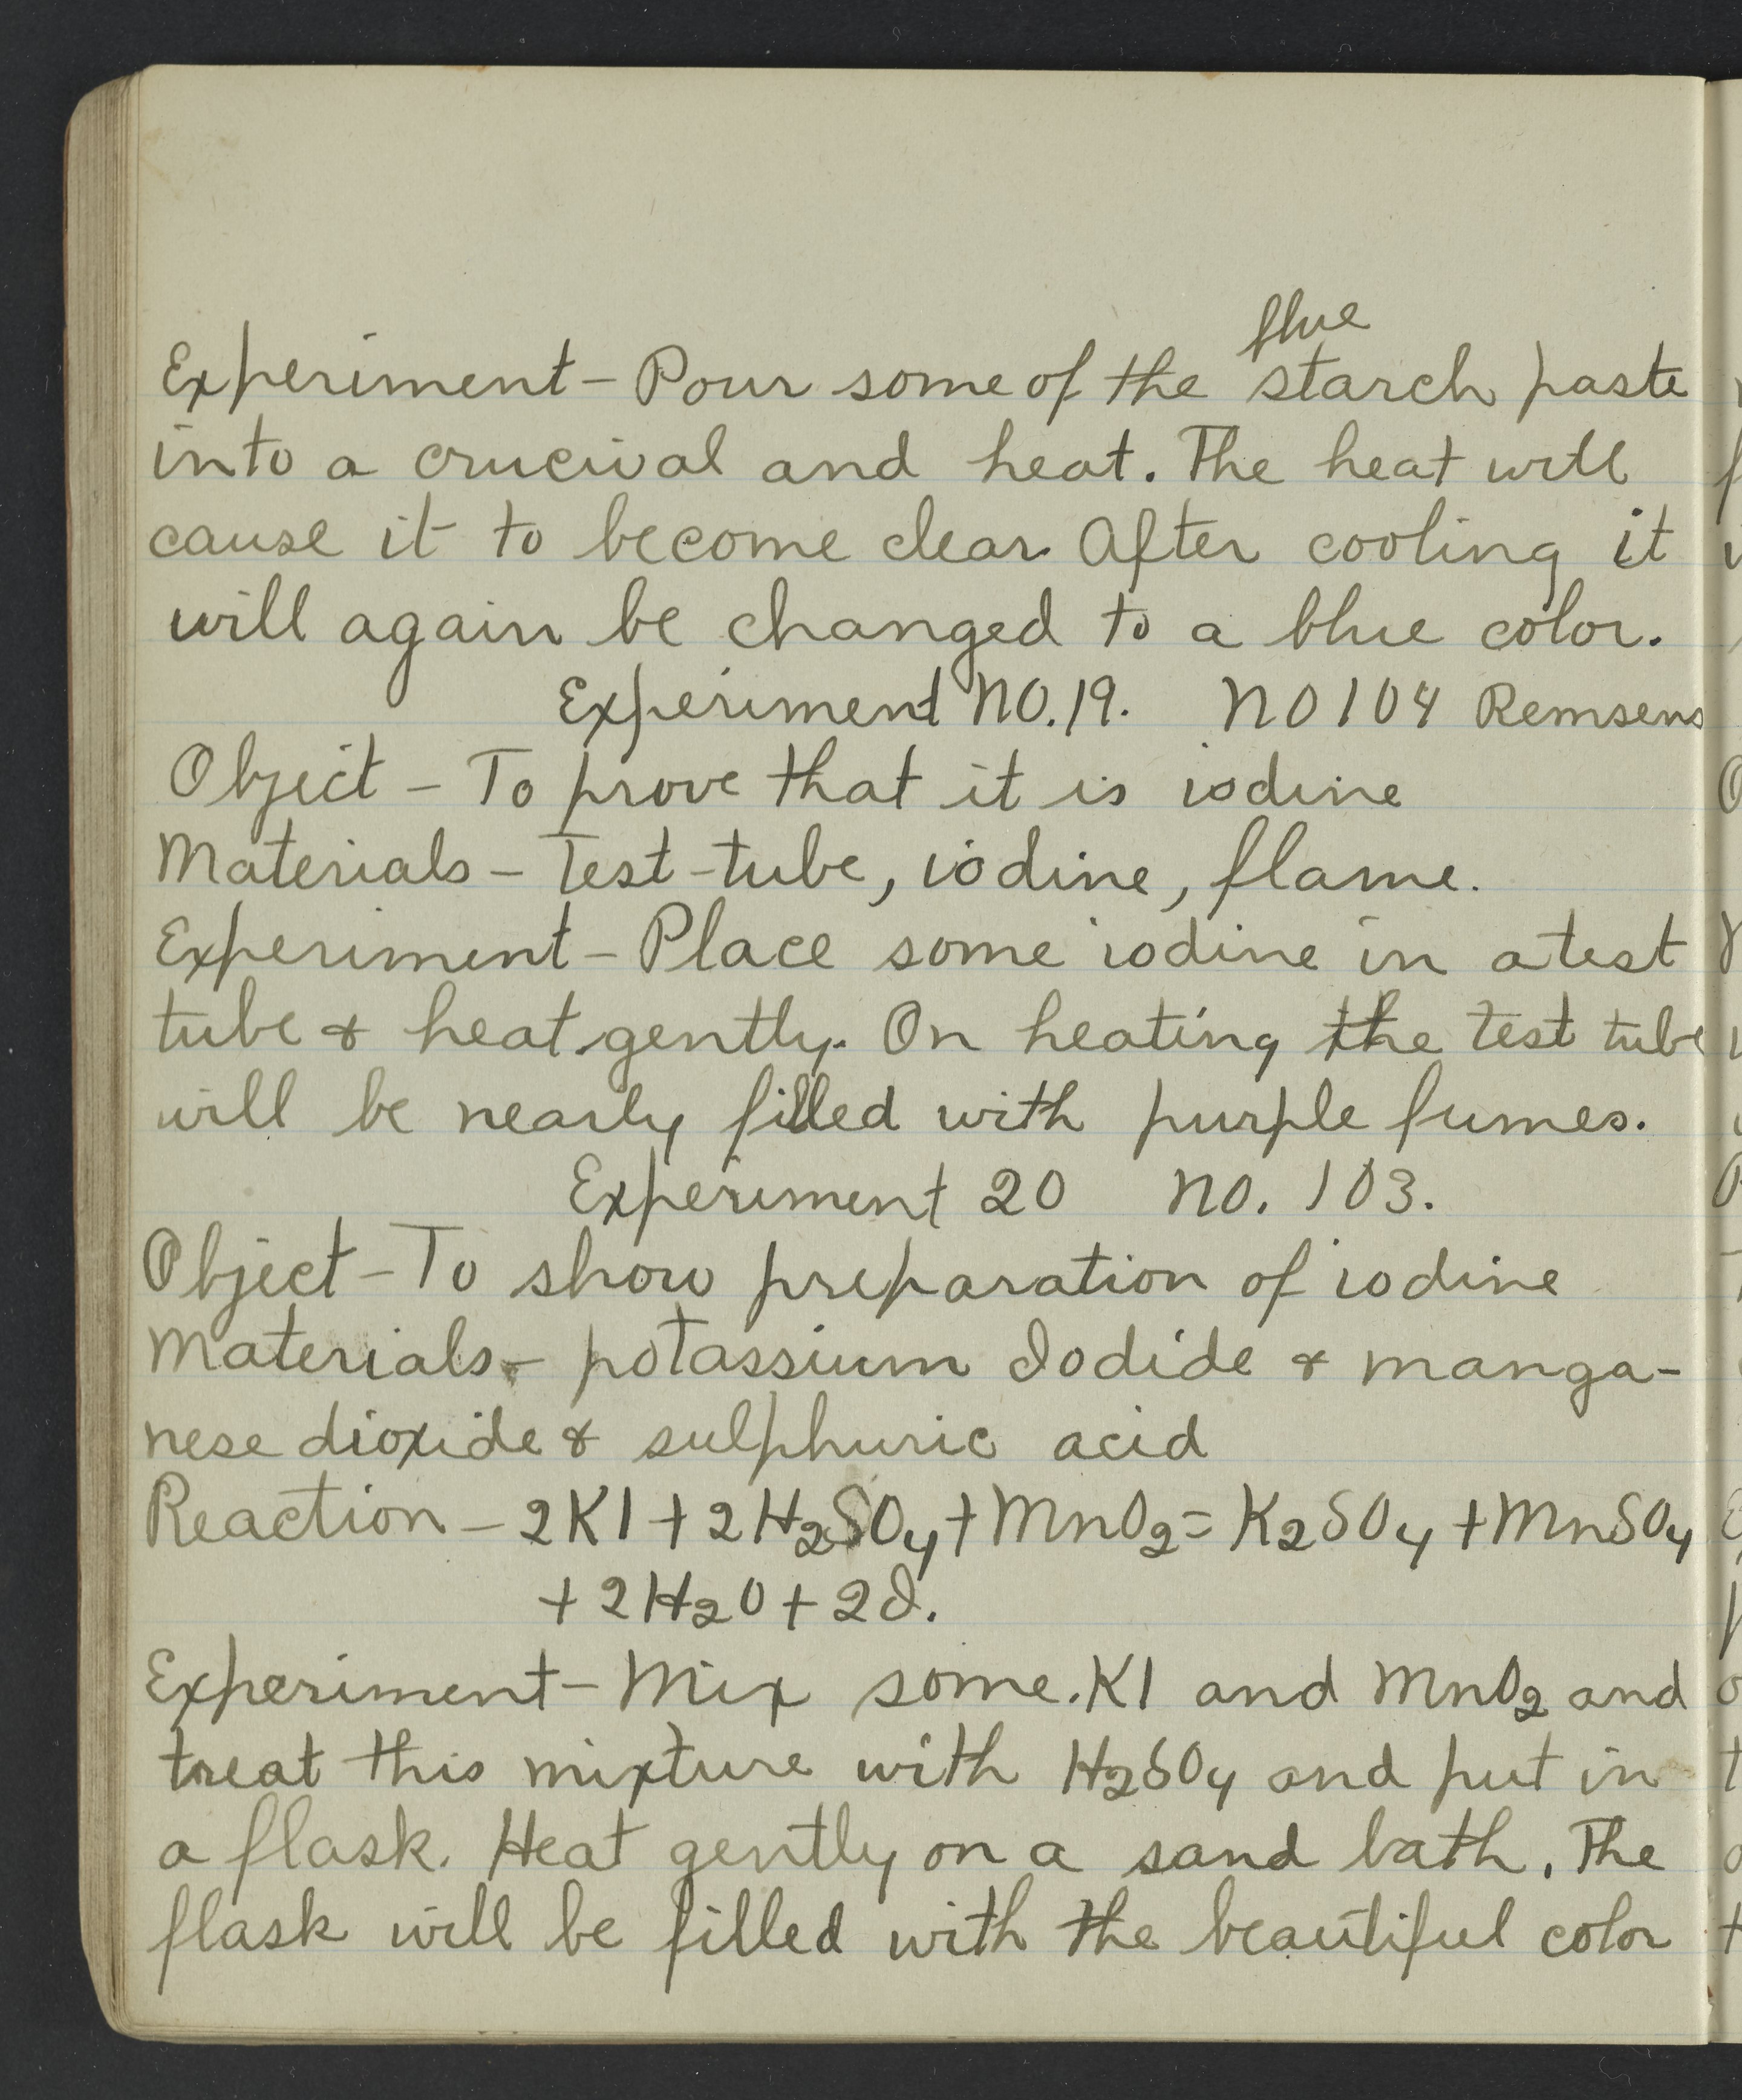 blue
Experiment - Pour some of the starch paste
into a crucival and heat. The heat will
cause it to become clear. After cooling it
will again be changed to a blue color.
Experiment NO. 19. NO 104 Remsens
Object - To prove that it is iodine
Materials - Test-tube, iodine, flame.
Experiment - Place some iodine in a test
tube & heat gently. On heating the test tube
will be nearly filled with purple fumes.
Experiment 20 NO. 103.
Object - To show preparation of iodine
Materials - potassium Iodide & manga-
nese dioxide & sulphuric acid
Reaction - 2KI + 2H₂SO₄ + MnO₂ = K₂SO₄ + MnSO₄
+ 2H₂O + 2I.
Experiment - Mix some KI and MnO₂ and
treat this mixture with H₂SO₄ and put in
a flask. Heat gently on a sand bath. The
flask will be filled with the beautiful color